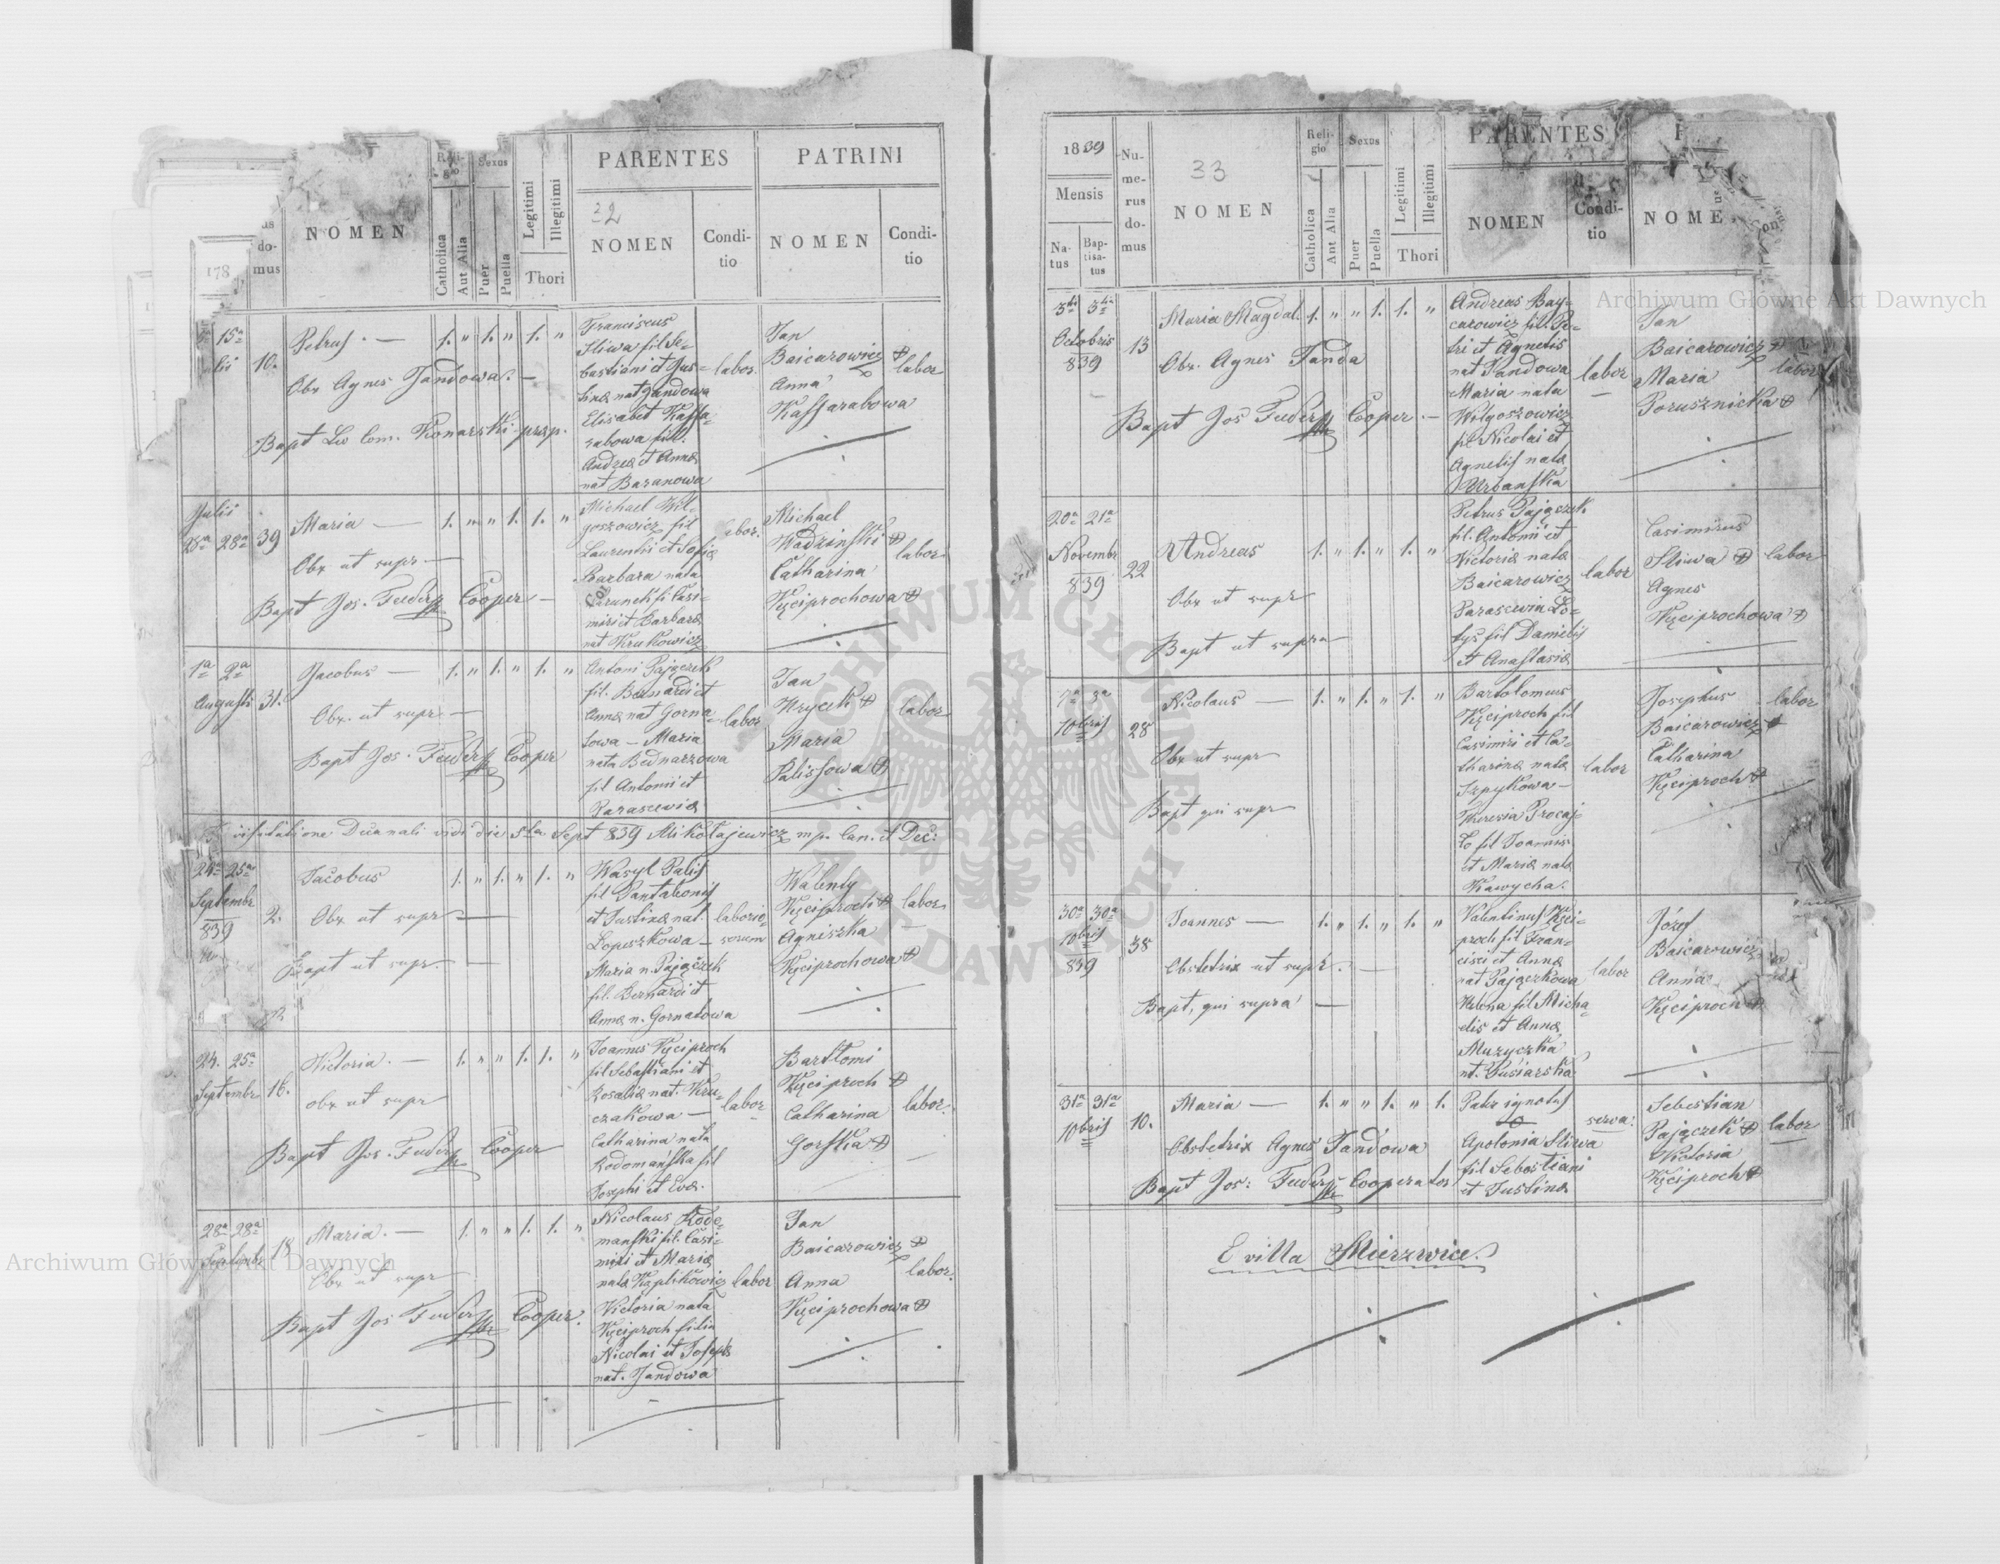 PARENTES
PATRINI
Sexus
NOMEN
do-
mus
Catholica
Aut Alia
Puer
Puella
Legitimi
Illegitimi
Thori
32
NOMEN
Condi-
tio
NOMEN
Condi-
tio
178
15ª
10.
Petrus. —
1. " 1. " 1. "
Obx Agnes Jandowa. —
Bapt Lco Com. Konarski prep.
Franciscus
Sliwa fil Se-
bastiani et Jus-
tinæ nat Jandowa
Elisabet Kassa-
rabowa fil.
Andreæ et Annæ
nat Baranowa
labor.
Jan
Baicarowicz
Anna
Kassarabowa
labor
Julii
28ª 28ª
39
Maria —
1. " " 1. 1. "
Obx ut supr —
Bapt Jos. Feuder Cooper —
Michael Wol-
goszowicz fil
Laurentii et Sofiæ
Barbara nata
fi Casi-
miri et Barbaræ
nat Krukowicz
labor.
Michael
Wodzinski
Catharina
Kęciprochowa
labor
1ª 2ª
Augusti
31.
Jacobus —
1. " 1. " 1. "
Obx. ut supr —
Bapt Jos. Feuder Cooper
Antoni Pajączek
fil. Bernardi et
Annæ nat Gorna-
towa — Maria
nata Bednarzowa
fil Antonii et
Parascewiæ
labor
Jan
Hrycek
Maria
Palissowa
labor
visitatione Decanali vidi die 5ta Sept 839 Mikołajewicz mp. Can. et Dec:
24ª 25ª
Septembr
839
2.
Jacobus
1. " 1. " 1. "
Obx ut supr —
Bapt ut supr. —
Wasyl Palis
fil Pantaleonis
et Justinæ nat.
Lopuszkowa —
Maria n. Pajączek
fil. Bernardi et
Annæ n. Gornatowa
laborio-
sorum
Walenty
Kęciproch
Agniszka
Kęciprochowa
labor.
24. 25ª
Septembr
16.
Victoria. —
1. " " 1. 1. "
obx ut supr
Bapt Jos. Feuder Cooper
Joannes Kęciproch
fil Sebastiani et
Rosaliæ nat. Kru-
czakowa —
Catharina nata
Rodomańska fil
Josephi et Evæ.
labor
Bartłomi
Kęciproch
Catharina
Gorska
labor.
28ª 28ª
Septembr
18
Maria. —
1. " " 1. 1. "
Obx ut supr
Bapt Jos Feuder Cooper.
Nicolaus Rodo-
mański fil. Casi-
miri et Mariæ
nata Kaplikowicz
Victoria nata
Kęciproch filia
Nicolai et Josephæ
nat. Jandowa
labor
Jan
Baicarowicz
Anna
Kęciprochowa
labor.
1839
Mensis
Na-
tus
Bap-
tisa-
tus
Nu-
me-
rus
do-
mus
33
NOMEN
Reli-
gio
Sexus
Catholica
Aut Alia
Puer
Puella
Legitimi
Illegitimi
Thori
PARENTES
NOMEN
Condi-
tio
NOME
3tia 3tia
Octobris
839
13
Maria Magdal.
1. " " 1. 1. "
Obx. Agnes Janda
Bapt Jos Feuder Cooper. —
Andreas Bay-
carowicz fil. Pe-
tri et Agnetis
nat Jandowa
Maria nata
Wolgoszowicz
fil Nicolai et
Agnetis nata
Urbanska
labor
—
Jan
Baicarowicz
Maria
Porusznicka
labor
20ª 21ª
Novembr
839
22
Andreas
1. " 1. " 1. "
Obx ut supr
Bapt ut supra —
Petrus Pajączek
fil. Antonii et
Victoriæ nata
Baicarowicz
Parascewia Ło-
tys fil Danielis
et Anastasiæ
labor
Casimirus
Sliwa
Agnes
Kęciprochowa
labor
10bris
28
Nicolaus —
1. " 1. " 1. "
Obx ut supr
Bapt qui supr
Bartolomeus
Kęciproch fil
Casimiri et Ca-
tharinæ nata
Szpykowa —
Theresia Procaj-
ło fil Joannis
et Mariæ nata
Kawycha.
labor
Josephus
Baicarowicz
Catharina
Kęciproch
labor
30ª 30ª
10bris
839
38
Joannes —
1. " 1. " 1. "
Obstetrix ut supr. —
Bapt, qui supra —
Valentinus Kęci-
proch fil Fran-
cisci et Annæ
nat Pajączkowa
Helena fil Micha-
elis et Annæ
Muzyczka
nt. Pusiarska
labor
Józef
Baicarowicz
Anna
Kęciproch
31ª 31ª
10bris
10.
Maria —
1. " " 1. " 1.
Obstetrix Agnes Jandowa
Bapt Jos: Feuder Cooperator
Pater ignotus
Apolonia Sliwa
fil Sebastiani
et Justinæ
serva.
Sebestian
Pajączek
Victoria
Kęciproch
labor
E villa Mierzwice.
Archiwum Główne Akt Dawnych
Archiwum Główne Akt Dawnych
ARCHIWUM GŁÓWNE
AKT DAWNYCH